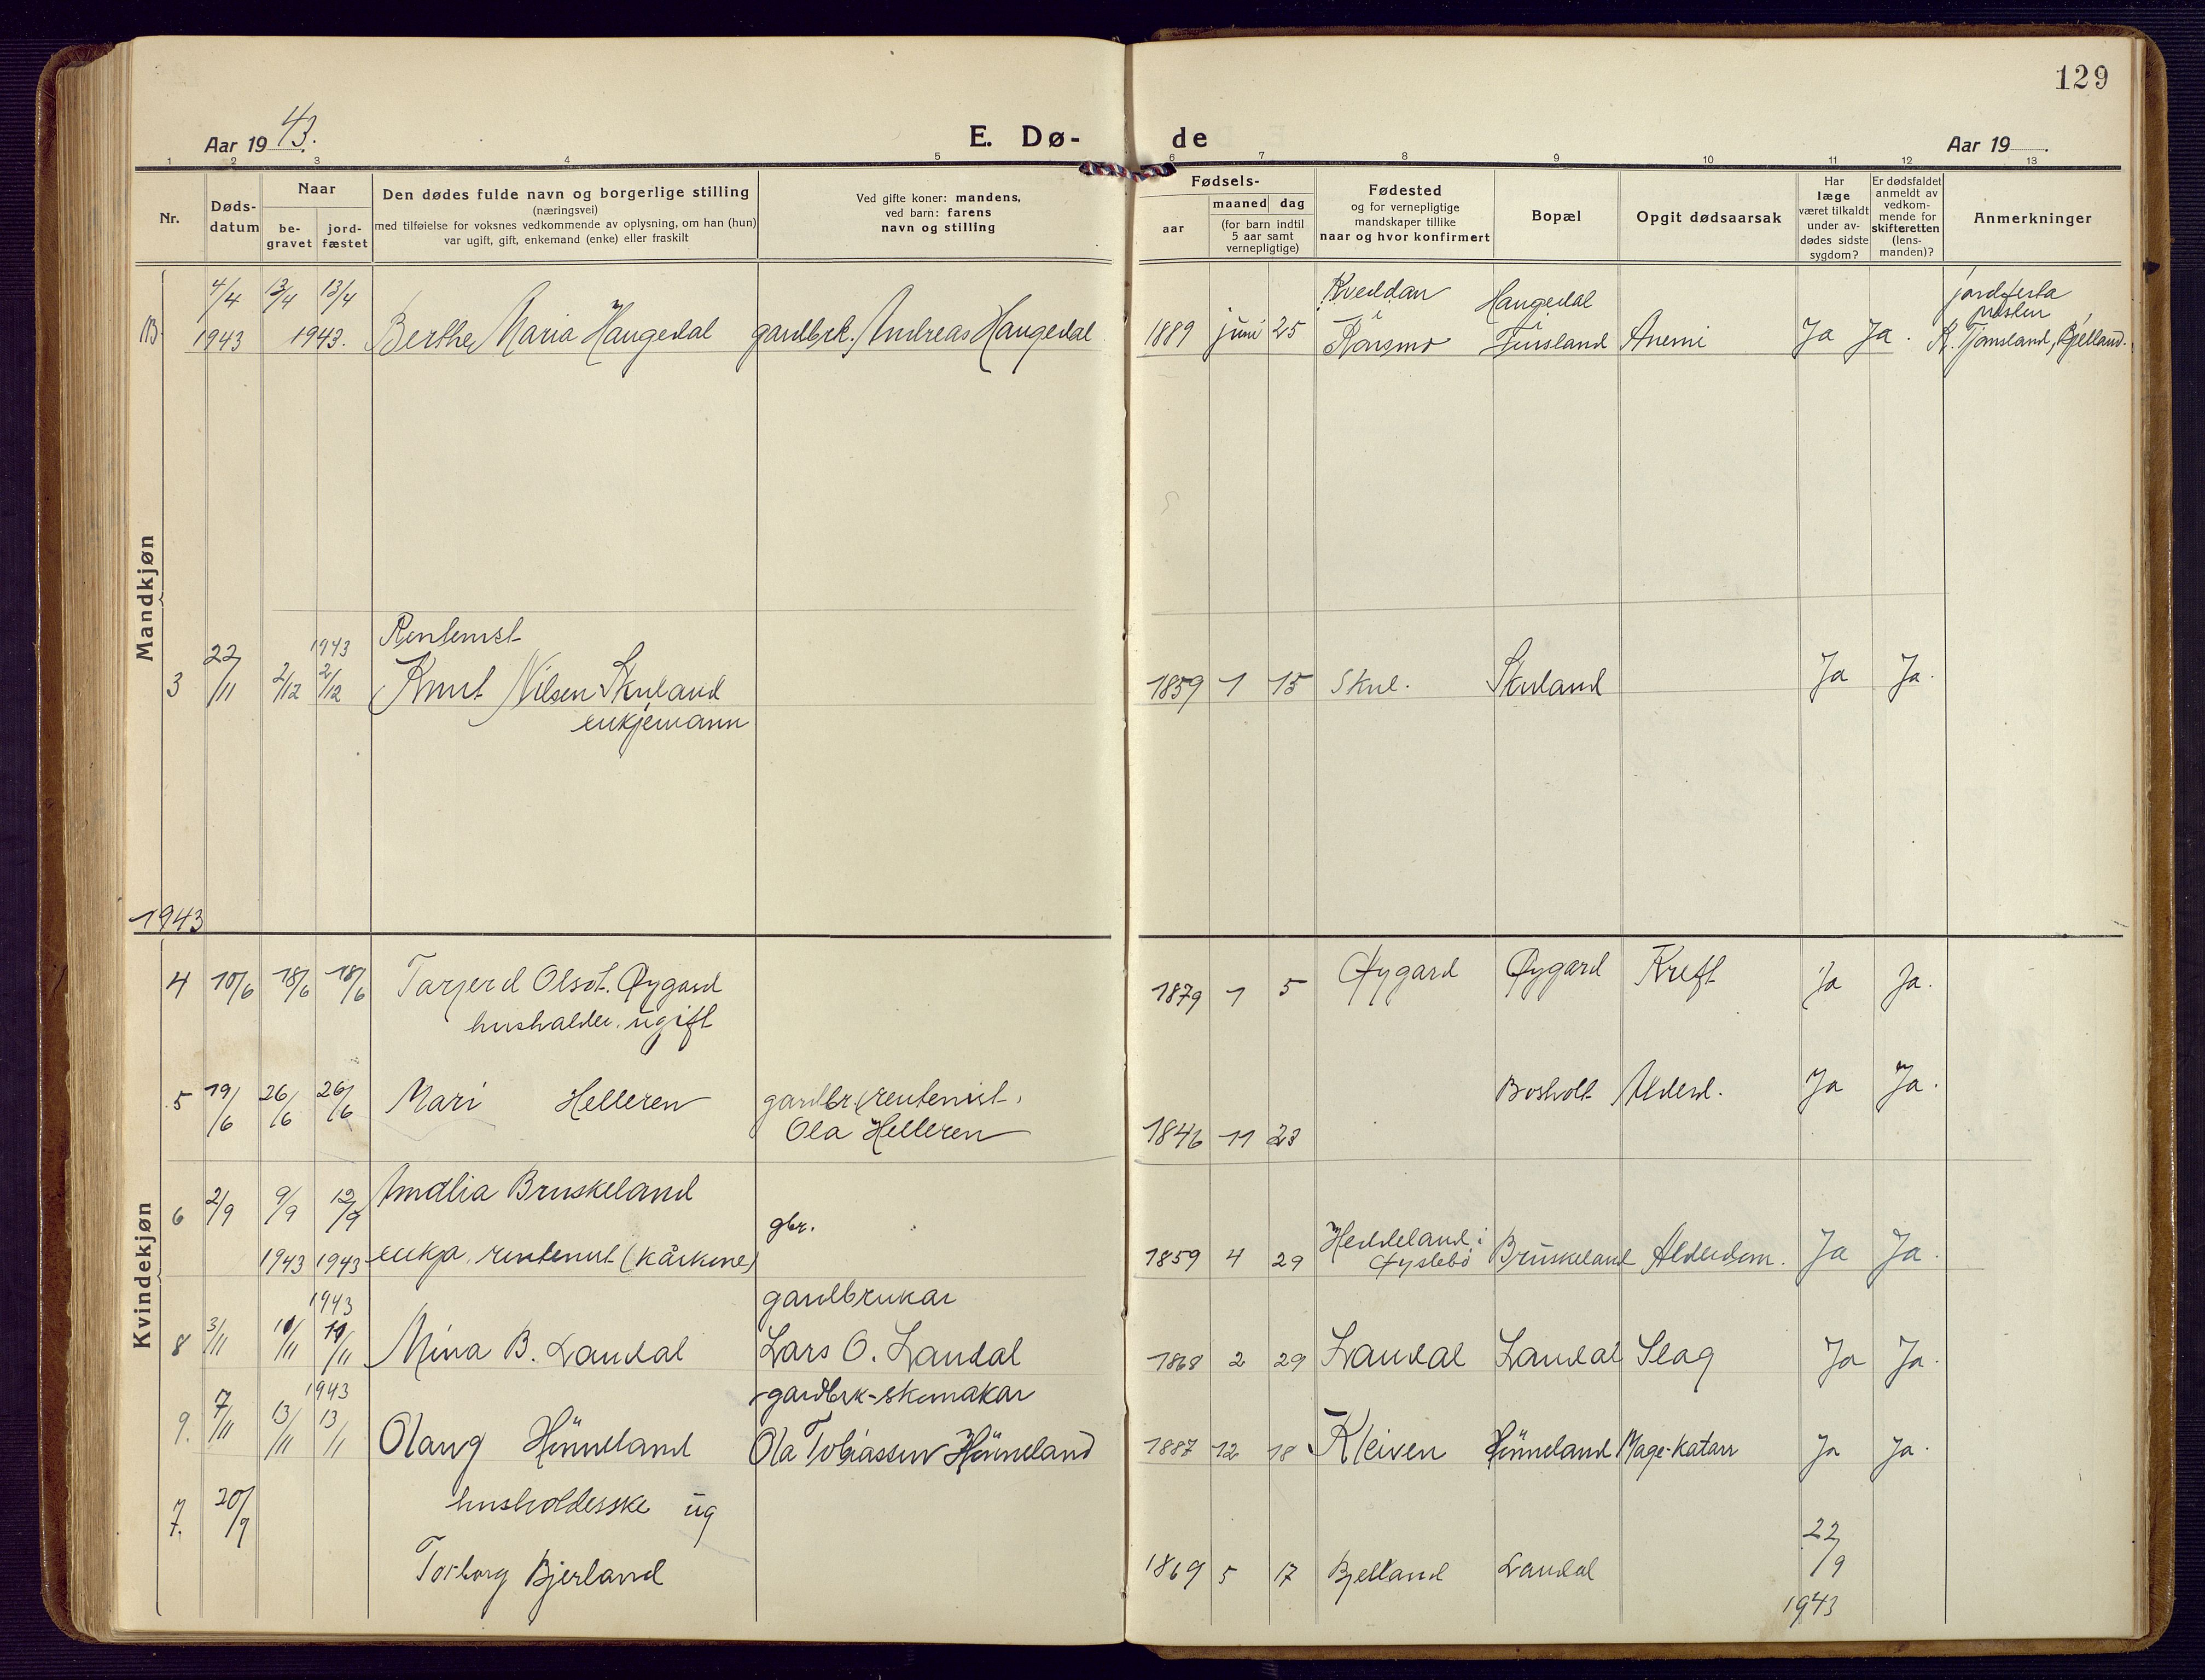 129
Aar 1943.
E. Dø-
de
Aar 19
1 2 3 4 5 6 7 8 9 10 11 12 13
Nr.
Døds-
datum
Naar
be-
gravet
jord-
fæstet
Den dødes fulde navn og borgerlige stilling
(næringsvei)
med tilføielse for voksnes vedkommende av oplysning, om han (hun)
var ugift, gift, enkemand (enke) eller fraskilt
Ved gifte koner: mandens,
ved barn: farens
navn og stilling
Fødsels-
aar
maaned dag
(for barn indtil
5 aar samt
vernepligtige)
Fødested
og for vernepligtige
mandskaper tillike
naar og hvor konfirmert
Bopæl
Opgit dødsaarsak
Har
læge
været tilkaldt
under av-
dødes sidste
sygdom?
Er dødsfaldet
anmeldt av
vedkom-
mende for
skifteretten
(lens-
manden)?
Anmerkninger
4/4 13/4 13/4 Kveddan Haugedal jordfesta
presten
B 1943 1943. Berthe Maria Haugedal gardbrk. Andreas Haugedal 1889 juni 25 i i Finsland Anemi Ja Ja. Tjomsland, Bjelland.
Mandkjøn
Rentenist
1943
3 22/11 2/12 2/12 Knut Nilsen Skuland 1859 1 15 Skul. Skuland Ja Ja.
enkjemann
1943
4 10/6 18/6 18/6 Tarjerd Olsdt. Øygard 1879 1 5 Øygard Øygard Kreft Ja Ja.
hushalder. ugift
5 19/6 26/6 26/6 Mari Helleren gardbr. rentenist. Bosholt Alderd. Ja Ja.
Ola Helleren 1846 11 23
Kvindekjøn
6 2/9 9/9 12/9 Amalia Bruskeland
gbr.
1943 1943 enkja, rentenist (kårkone) 1859 4 29 Heddeland i Øyslebø Bruskeland Alderdom. Ja Ja.
1943 gardbrukar
8 3/11 10/11 10/11 Mina B. Laudal Lars O. Laudal 1868 2 29 Laudal Laudal Slag Ja Ja.
1943 gardbrk-skomakar
9. 7/11 13/11 13/11 Olaug Hønneland Ola Tobiassen Hønneland 1887 12 18 Kleiven Hønneland Mage-katarr Ja Ja.
7. 20/9 husholderske ug
22/9
Torborg Bjerland 1869 5 17 Bjelland Laudal
1943